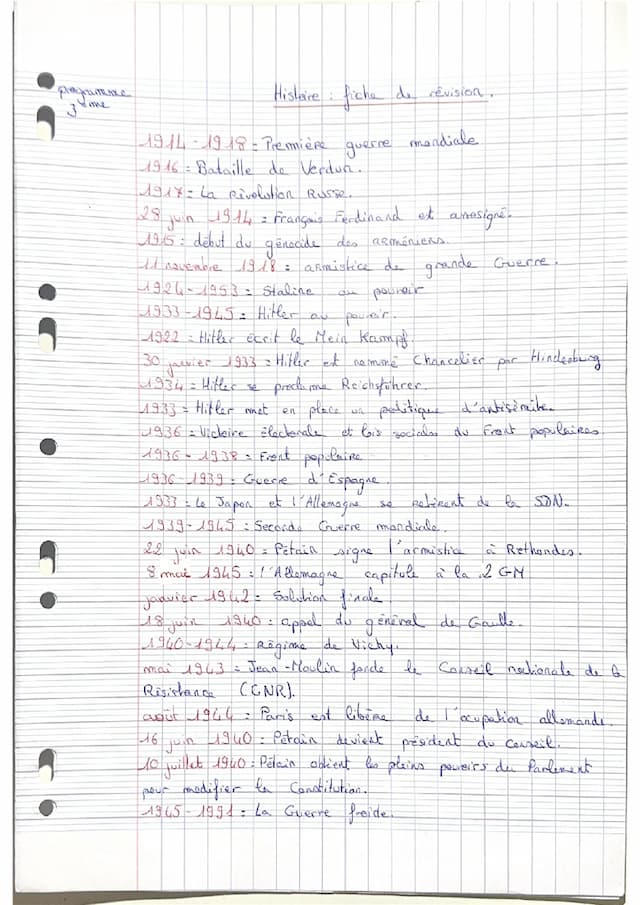 Histoire : fiche de révision.
programme
3ème
1914-1918 = Première guerre mondiale
1916 = Bataille de Verdun.
1917 = La Révolution Russe.
28 juin 1914 = François Ferdinand et assesigné.
1915 : début du génocide des arméniens.
11 novembre 1918 : armistice de grande Guerre.
1924-1953 = Staline au pouvoir
1933-1945 = Hitler au pouvoir.
1922 = Hitler écrit le Mein Kampf.
30 janvier 1933 = Hitler est nommé Chancelier par Hindenburg
1934 = Hitler se proclame Reichsführer.
1933 = Hitler met en place un politique d'antisémite.
1936 = Victoire électorale et lois sociales du Front populaires
1936-1938 = Front populaire
1936-1939 = Guerre d'Espagne.
1933 = Le Japon et l'Allemagne se retirent de la SDN.
1939-1945 : Seconde Guerre mondiale.
22 juin 1940 = Pétain signe l'armistice à Rethondes.
8 mai 1945 = l'Allemagne capitule à la 2 GM
janvier 1942 = Solution finale
18 juin 1940 : appel du général de Gaulle.
1940-1944 : Régime de Vichy.
mai 1943 = Jean-Moulin fonde le Conseil nationale de la
Résistance (CNR).
août 1944 : Paris est libéré de l'ocupation allemande.
16 juin 1940 = Pétain devient président du Conseil.
10 juillet 1940 : Pétain obtient les pleins pouvoirs du Parlement
pour modifier la Constitution.
1945-1991 : La Guerre froide.